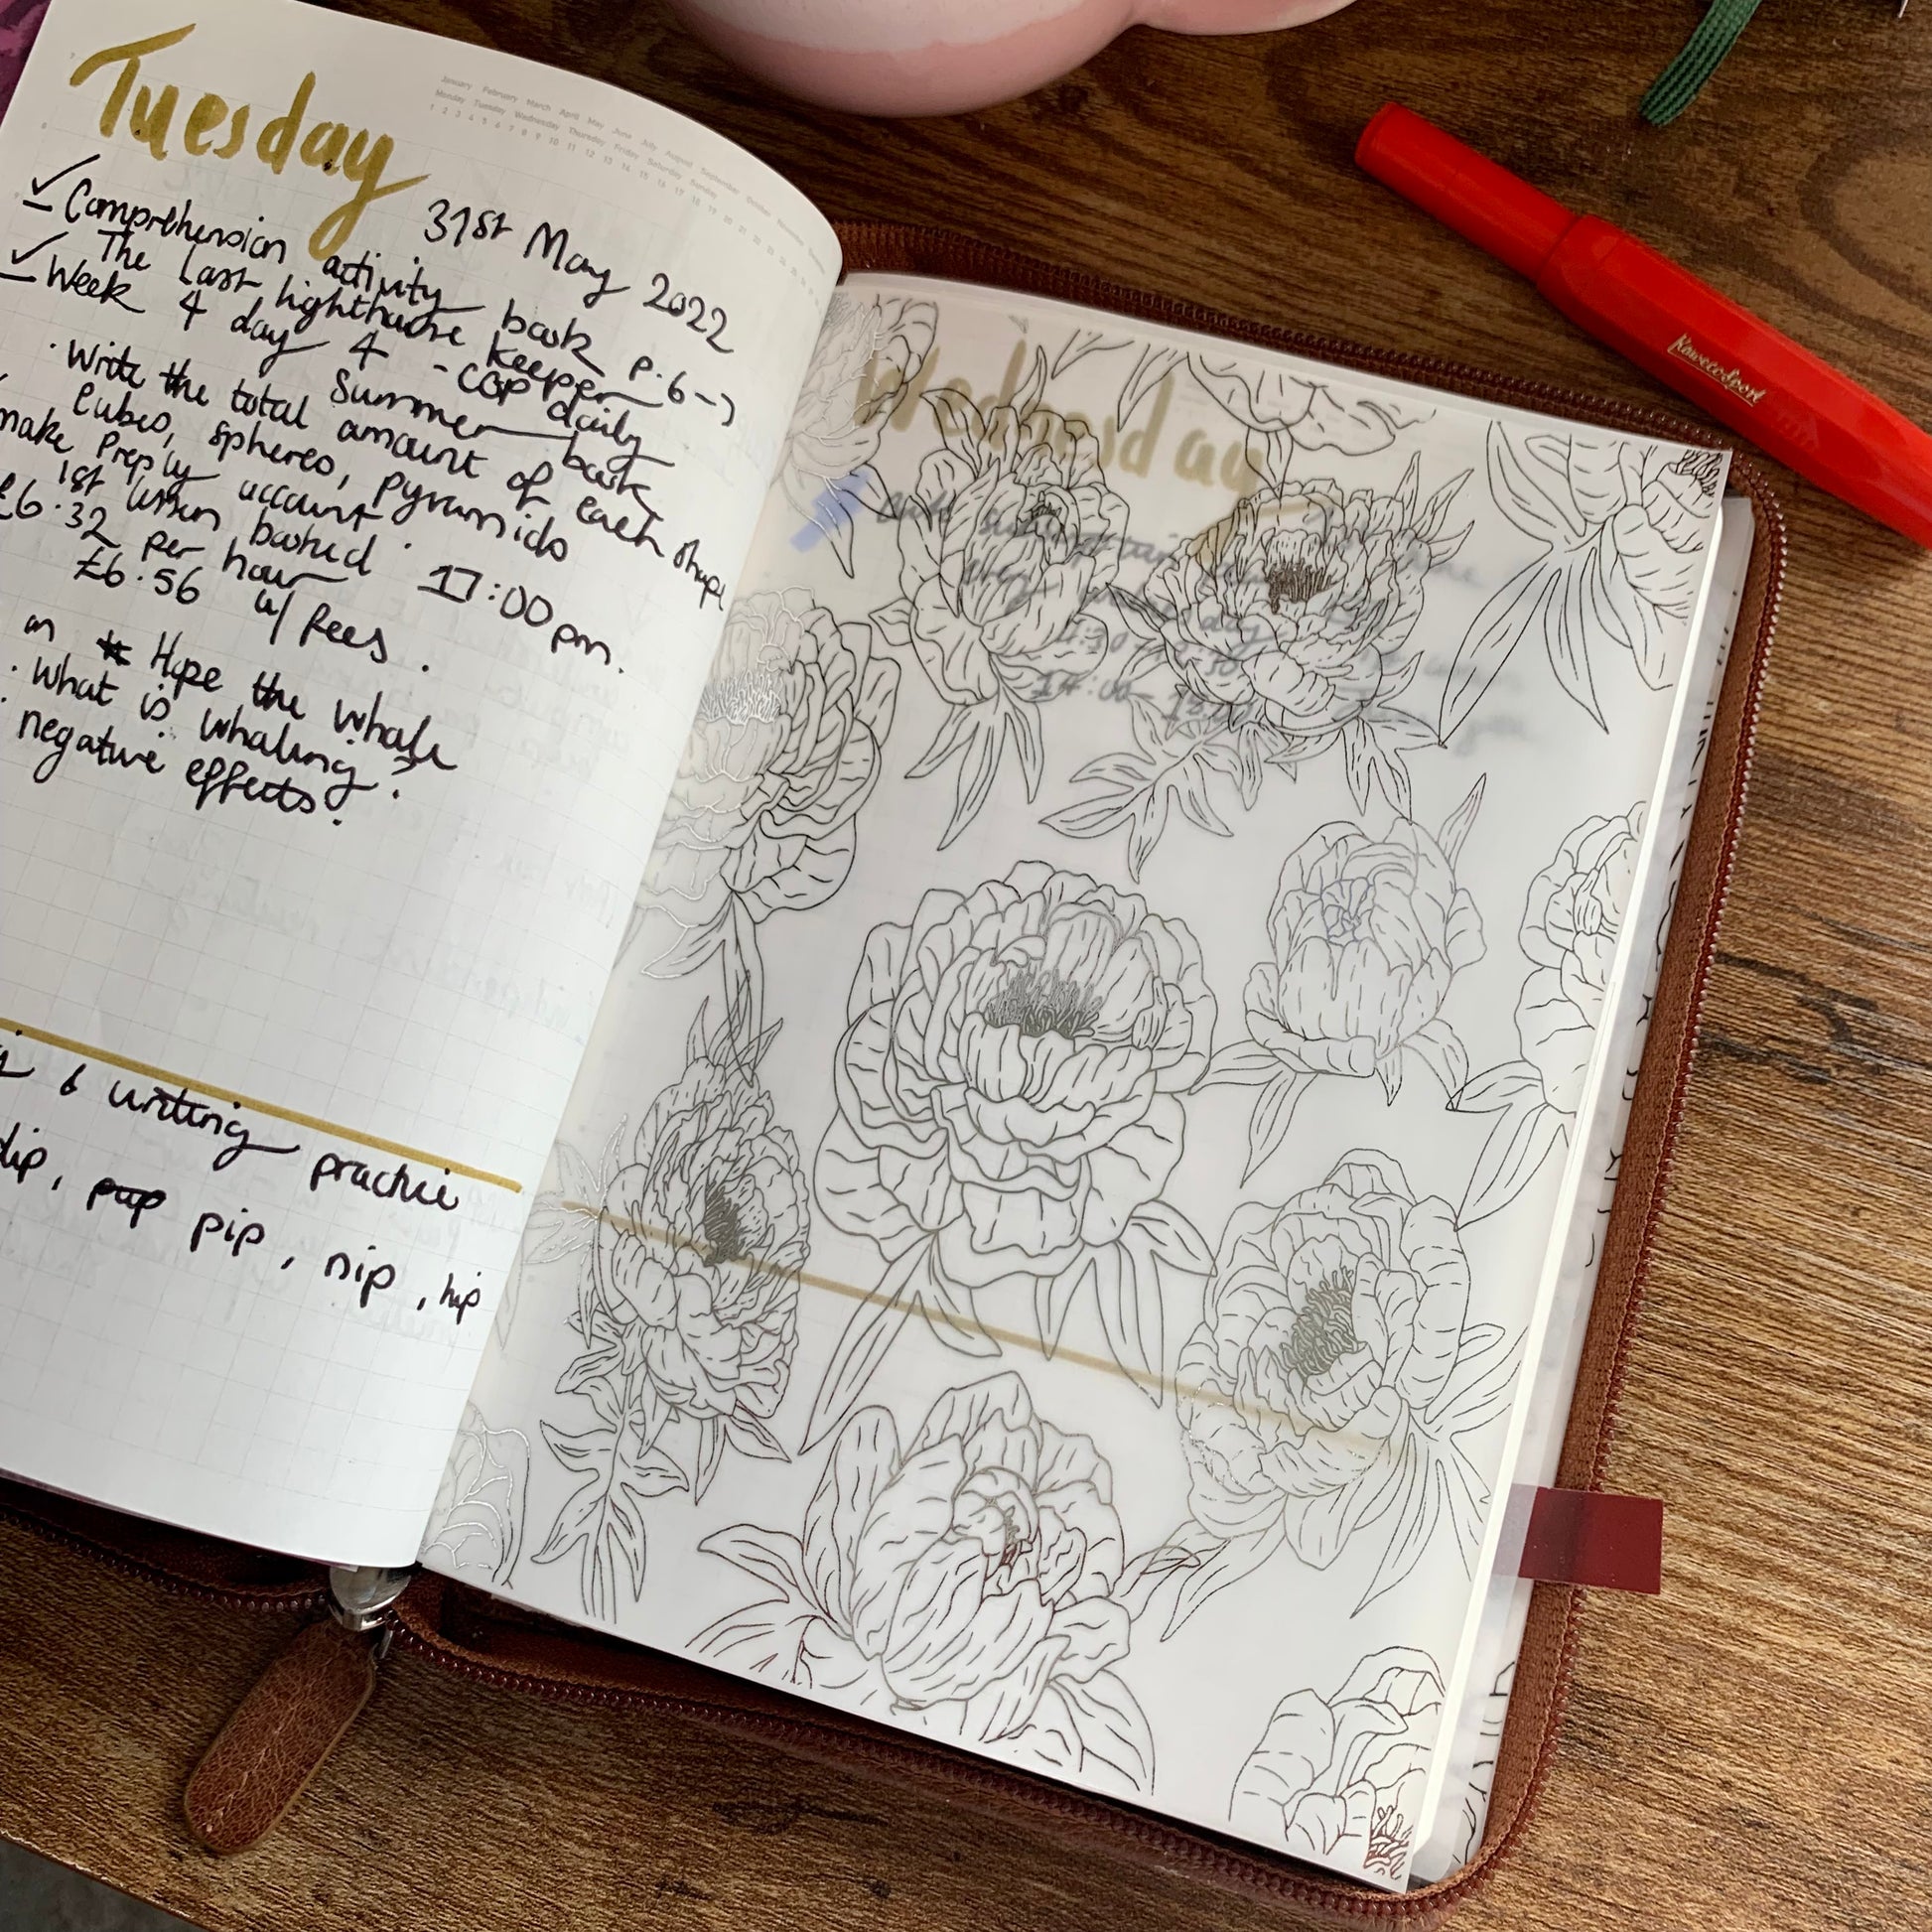 Tuesday
January February March April May June July August September October November December
Monday Tuesday Wednesday Thursday Friday Saturday Sunday
1 2 3 4 5 6 7 8 9 10 11 12 13 14 15 16 17 18 19 20 21 22 23 24 25 26 27 28 29 30 31
31st May 2022
Comprehension activity book p.6->
The Last lighthouse keeper
Week 4 day 4 - CGP daily
Summer book
· Write the total amount of each shape
cubes, spheres, pyramids
make Preply account
1st lesson booked · 17:00 pm.
£6.32 per hour
£6.56 w/ fees.
on Hope the whale
· What is whaling?
· negative effects?
6 writing practice
dip, pup pip, nip, hip
Wednesday
14:00
KawecoSport